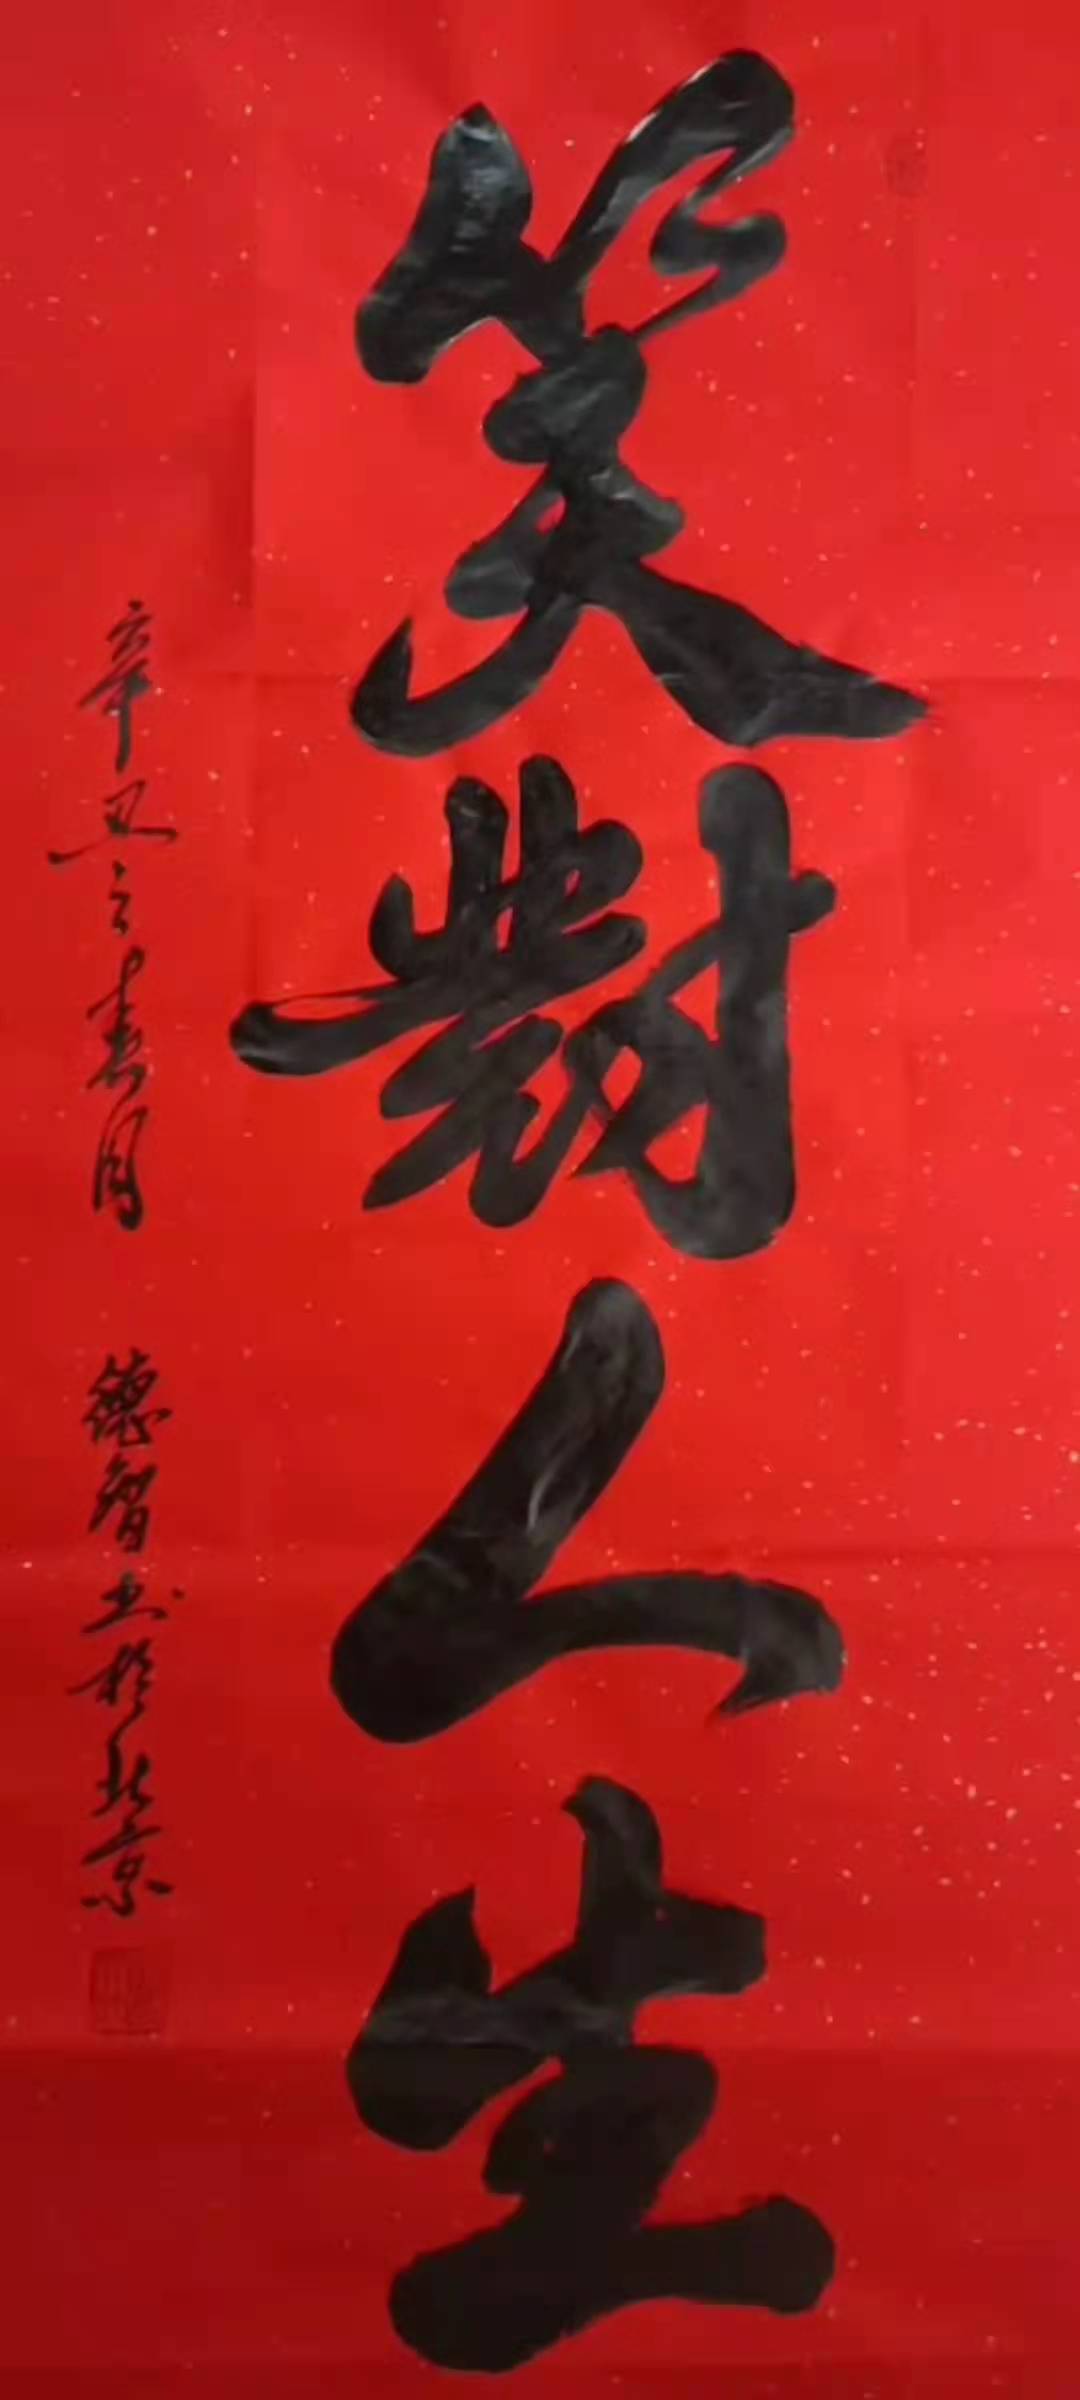 笑對人生
辛丑之春月 德智书於北京